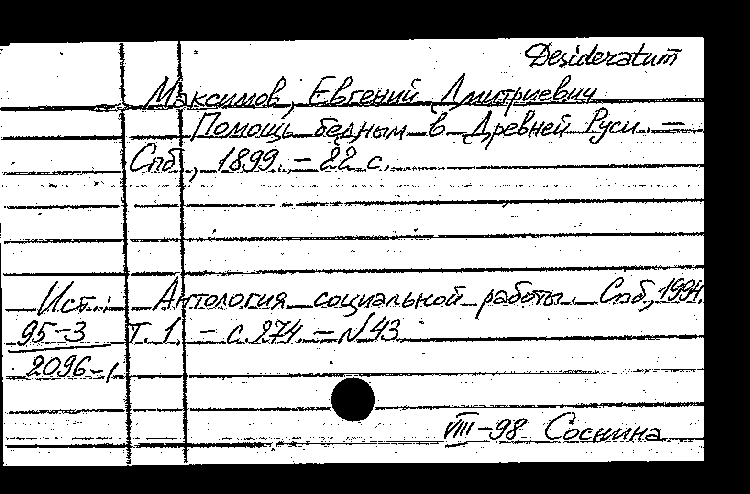 Desideratum
Максимов, Евгений Дмитриевич
Помощь бедным в Древней Руси. –
Спб., 1899. – 22 с.
Ист.: Антология социальной работы. Спб., 1994.
95-3 Т. 1. – с. 274. – №43
2096-1
VIII-98 Соснина